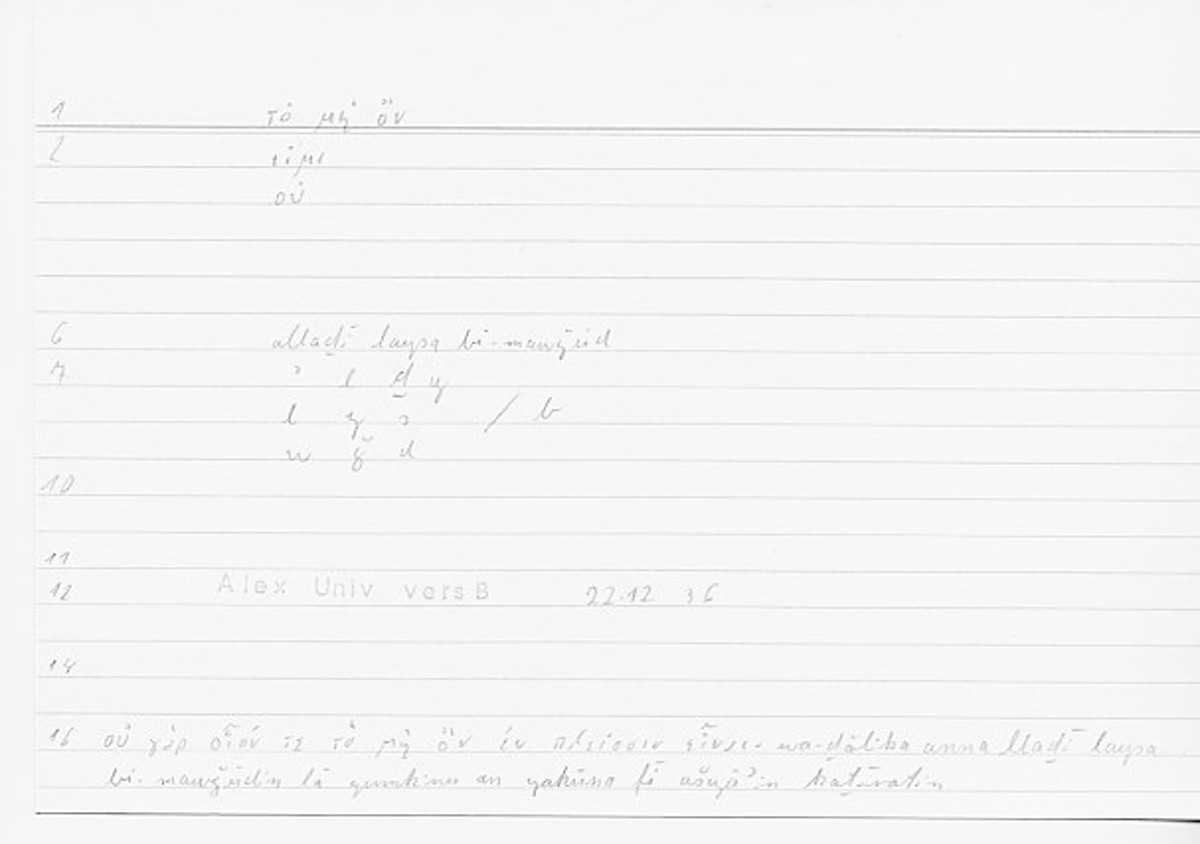 1 τὸ μὴ ὄν
2 εἰμι
οὐ
6 allaḏī laysa bi-mawǧūd
7 ʾ l ḏ y
l y s / b
w ǧ d
10
11
12 Alex Univ vers B 22.12 36
14
16 οὐ γὰρ οἷόν τε τὸ μὴ ὂν ἐν πλείοσιν εἶναι· wa-ḏālika anna llaḏī laysa
bi-mawǧūdin lā yumkinu an yakūna fī ašyāʾin kaṯīratin